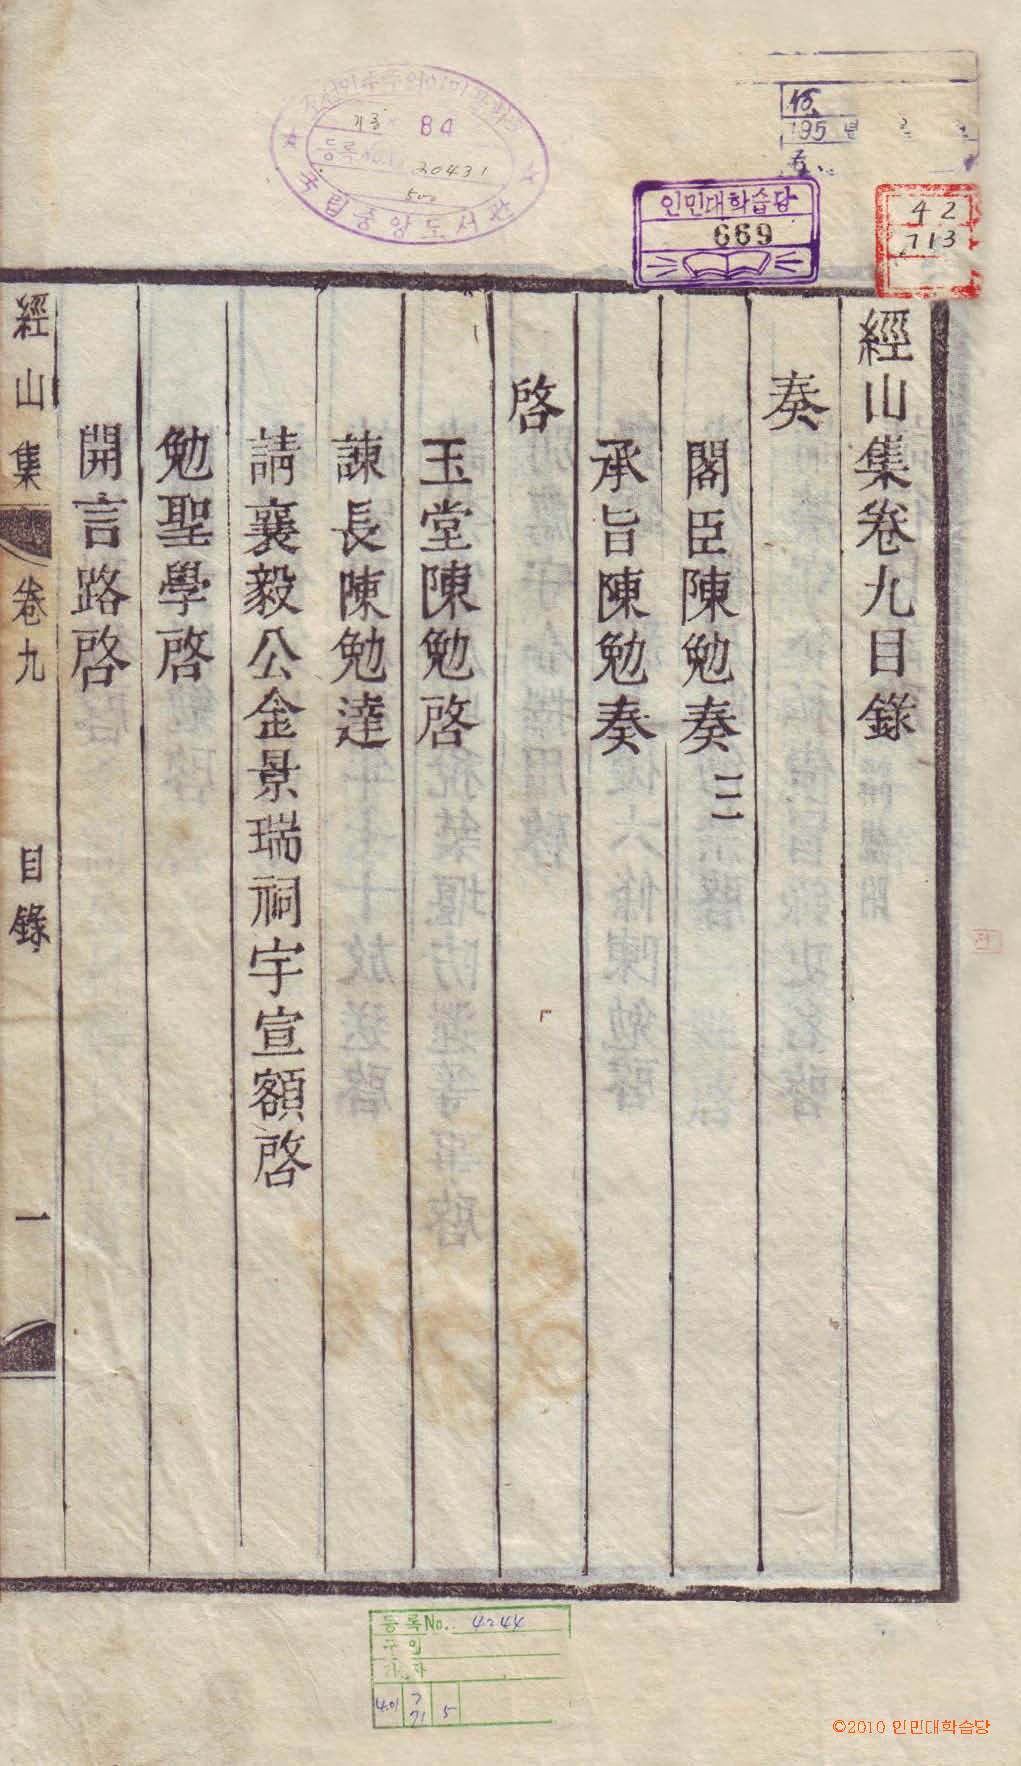 經山集卷九目錄
奏
閣臣陳勉奏 二
承旨陳勉奏
啓
玉堂陳勉啓
諫長陳勉達
請襄毅公金景瑞祠宇宣額啓
勉聖學啓
開言路啓
經山集
卷九
目錄
一
84
등록No.
20431
국립중앙도서관
195 년
인민대학습당
669
42
713
등록No. 4244
구입
5
©2010 인민대학습당